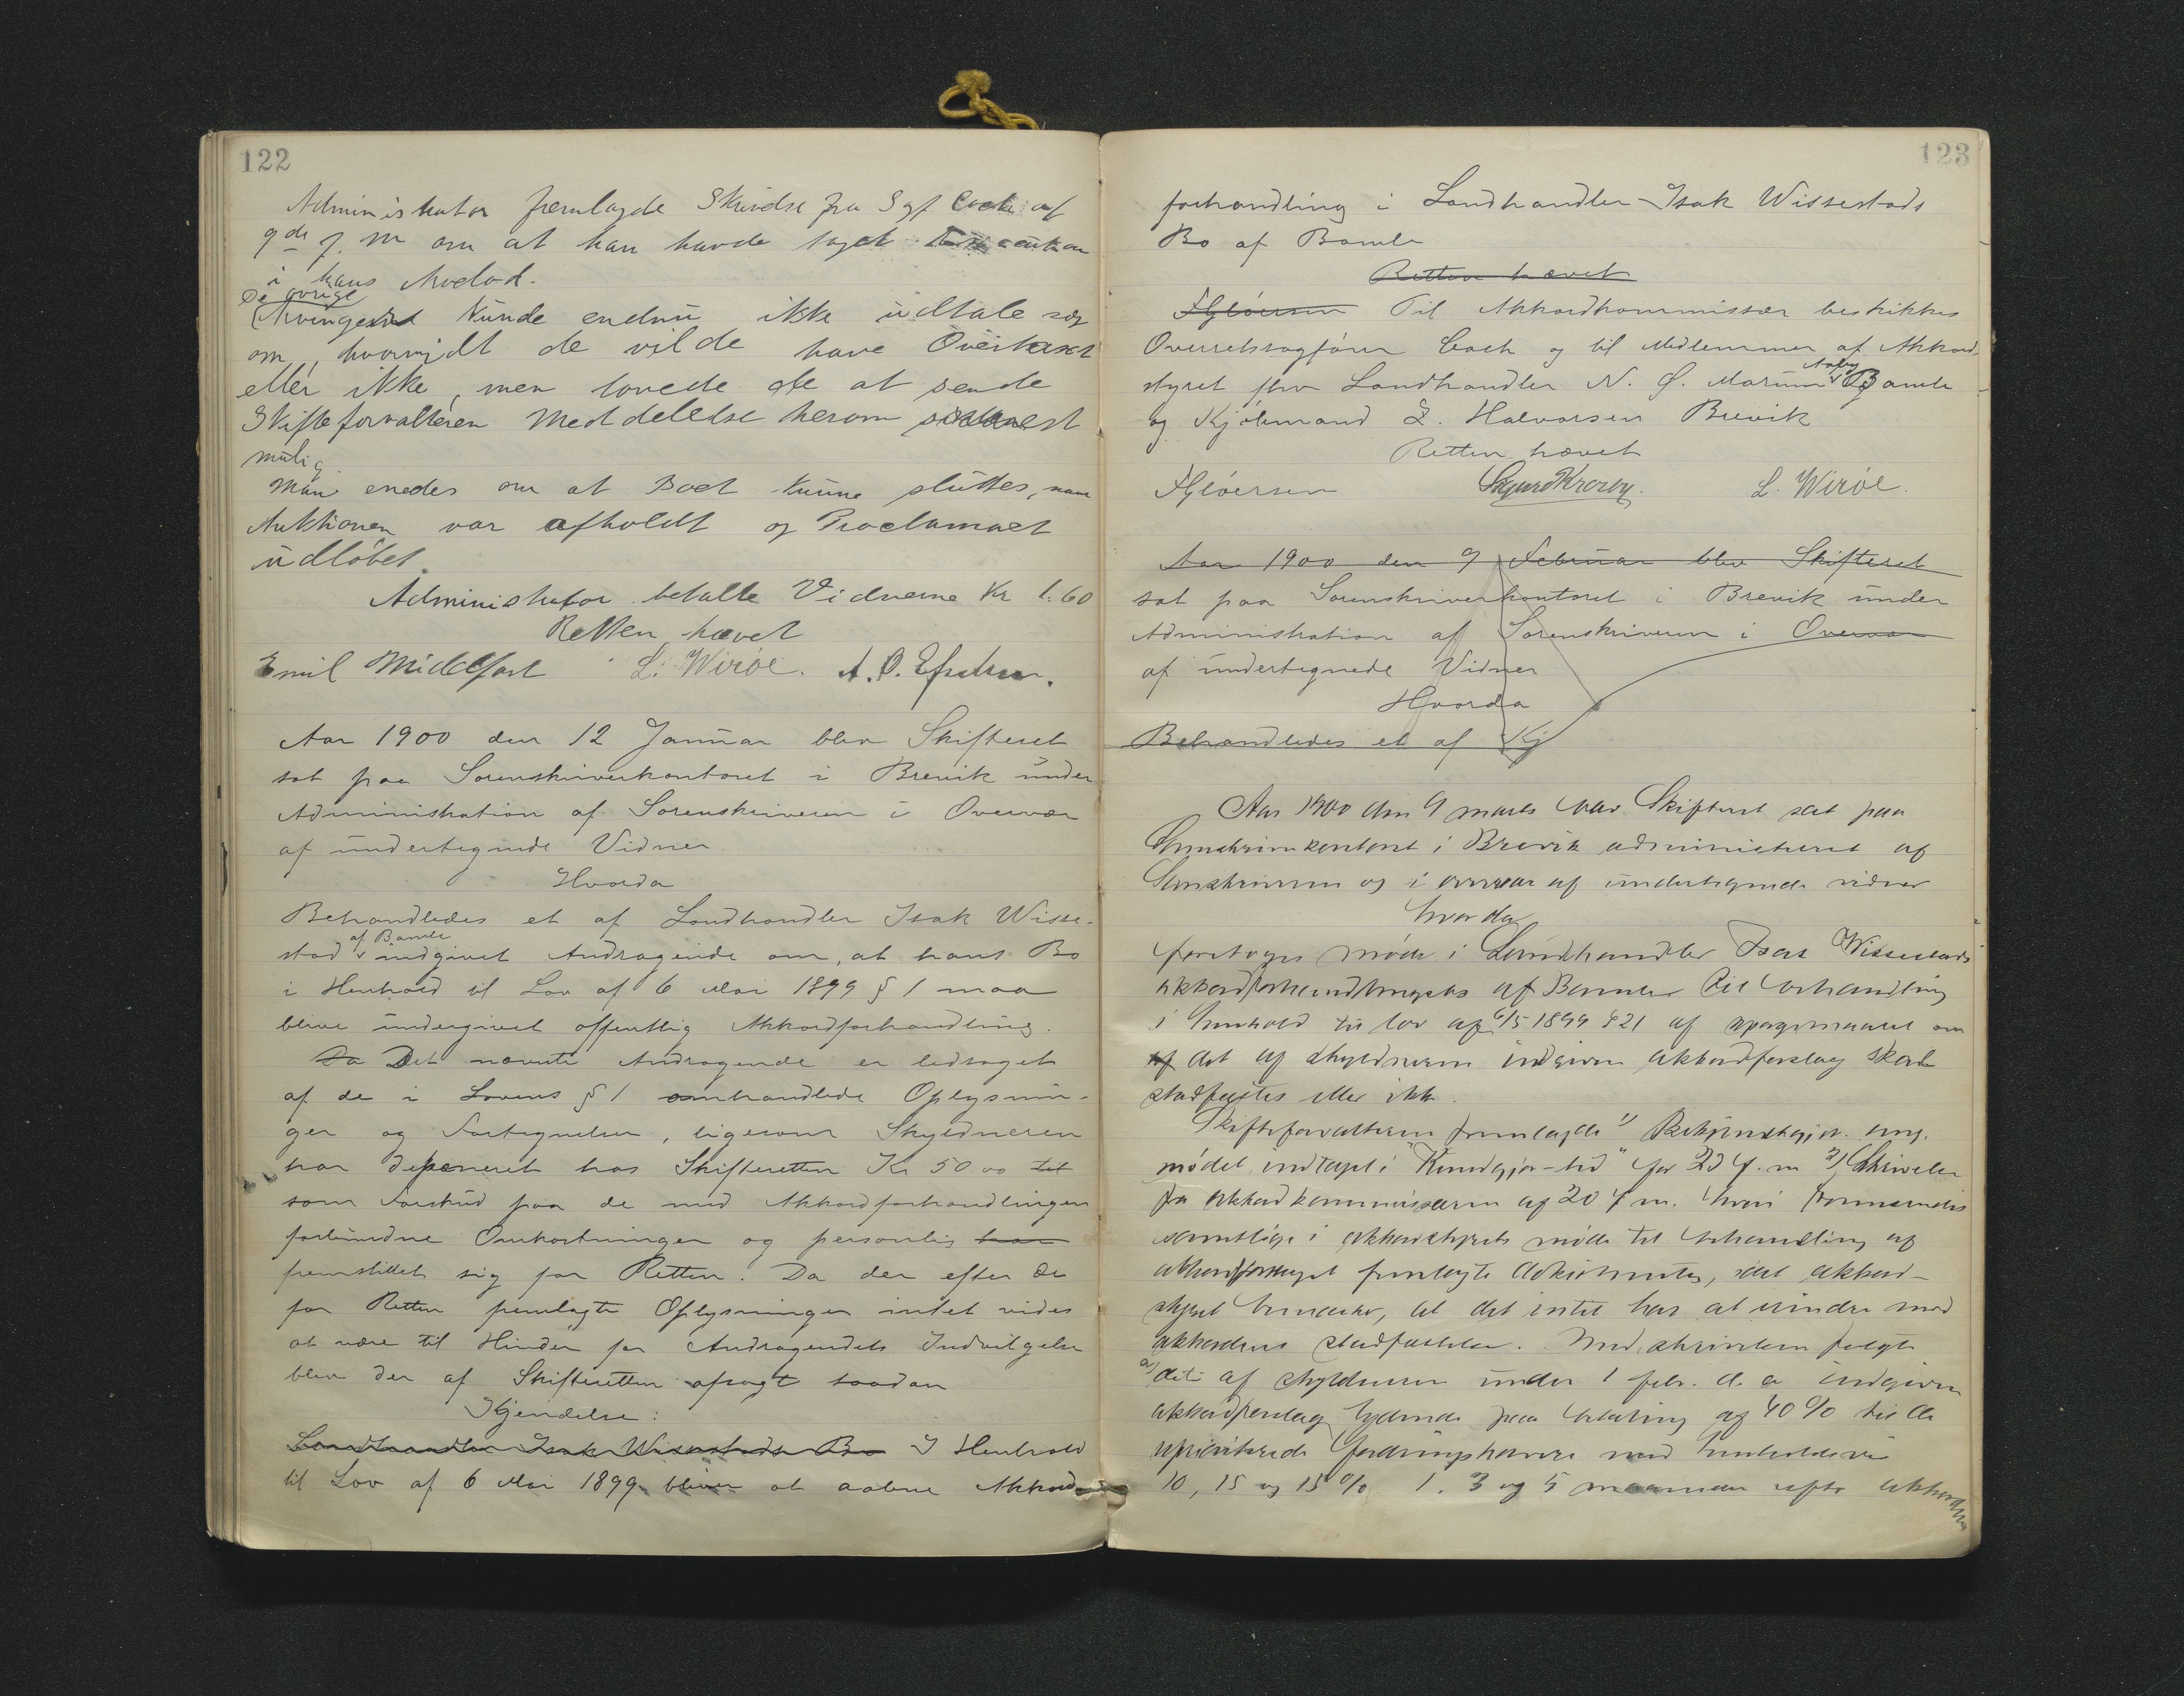 122
Administrator fremlagde Skrivelse fra Sgf Coch af
9de f. M om at han havde taget
i hans Arvelod.
De øvrige
Arvinger kunde endnu ikke udtale sig
om, hvorvidt de vilde have Overtaxt
eller ikke, men lovede de at sende
Skifteforvalteren Meddelelse herom snarest
mulig.
Man enedes om at Boet kunne sluttes, naar
Auktionen var afholdt og Proclamaet
udløbet.
Administrator betalte Vidnerne Kr 1.60
Retten hævet
Emil Middelfart L. Wirøe. A. O.
Aar 1900 den 12 Januar blev Skifteret
sat paa Sorenskriverkontoret i Brevik under
Administration af Sorenskriveren i Overvær
af undertegnede Vidner
Hvorda
Behandledes et af Landhandler Isak Wisse-
af Bamle
stad indgivet Andragende om, at hans Bo
i Henhold til Lov af 6 Mai 1899 § 1 maa
blive undergivet offentlig Akkordforhandling.
Da Det nævnte Andragende er ledsaget
af de i Lovens § 1 omhandlede Oplysnin-
ger og Fortegnelser, ligesom Skyldneren
har deponeret hos Skifteretten Kr 50.00 til
som Forskud paa de med Akkordforhandlingen
forbundne Omkostninger og personlig har
fremstillet sig for Retten. Da der efter de
for Retten fremlagte Oplysninger intet vides
at være til Hinder for Andragendets Indvilgelse
blev der af Skifteretten afsagt saadan
Kjendelse:
Landhandler Isak Wissestads Bo I Henhold
til Lov af 6 Mai 1899 bliver at aabne Akkord-
123
forhandling i Landhandler Isak Wissestads
Bo af Bamle
Retten hævet
FGløersen Til Akkordkommissær beskikkes
Overretssagfører Coch og til Medlemmer af Akkord-
Aaby
styret Hr Landhandler N. G. Bamle
og Kjøbmand Z. Halvorsen Brevik
Retten hævet
FGløersen Sigurd L. Wirøe.
Aar 1900 den 9 Februar blev Skifteret
sat paa Sorenskriverkontoret i Brevik under
Administration af Sorenskriveren i Overvær
af undertegnede Vidner
Hvorda
Behandledes et af Kj
Aar 1900 den 9 marts blev Skifteret sat paa
Sorenskriverkontoret i Brevik administreret af
Sorenskriveren og i overvær af undertegnede vidner
hvorda
foretoges møde i Landhandler Isak Wissestads
akkordforhandlingsbo af Bamle til behandling
i henhold til lov af 6/5 1899 § 21 af spørgsmaalet om
af det af skyldneren indgivne akkordforslag skal
stadfæstes eller ikke.
Skifteforvalteren fremlagde 1) Bekjendtgjør. ang.
mødet indtaget i "Kundgjør-tid" for 23 f. m 2) Skrivelse
fra akkordkommissæren af 20 f m. hvori
samtlige i akkordstyrets møde til behandling af
akkordforslaget fremlagte dokumenter, idet akkord-
styret bemærker, at det intet har at erindre mod
akkordens stadfæstelse. Med skrivelsen fulgte
a) det af skyldneren under 1 febr. d. a indgivne
akkordforslag lydende paa betaling af 40 % til de
uprioriterede fordringshavere med henholdsvis
10, 15 og 15 % 1, 3 og 5 maaneder efter akkordens